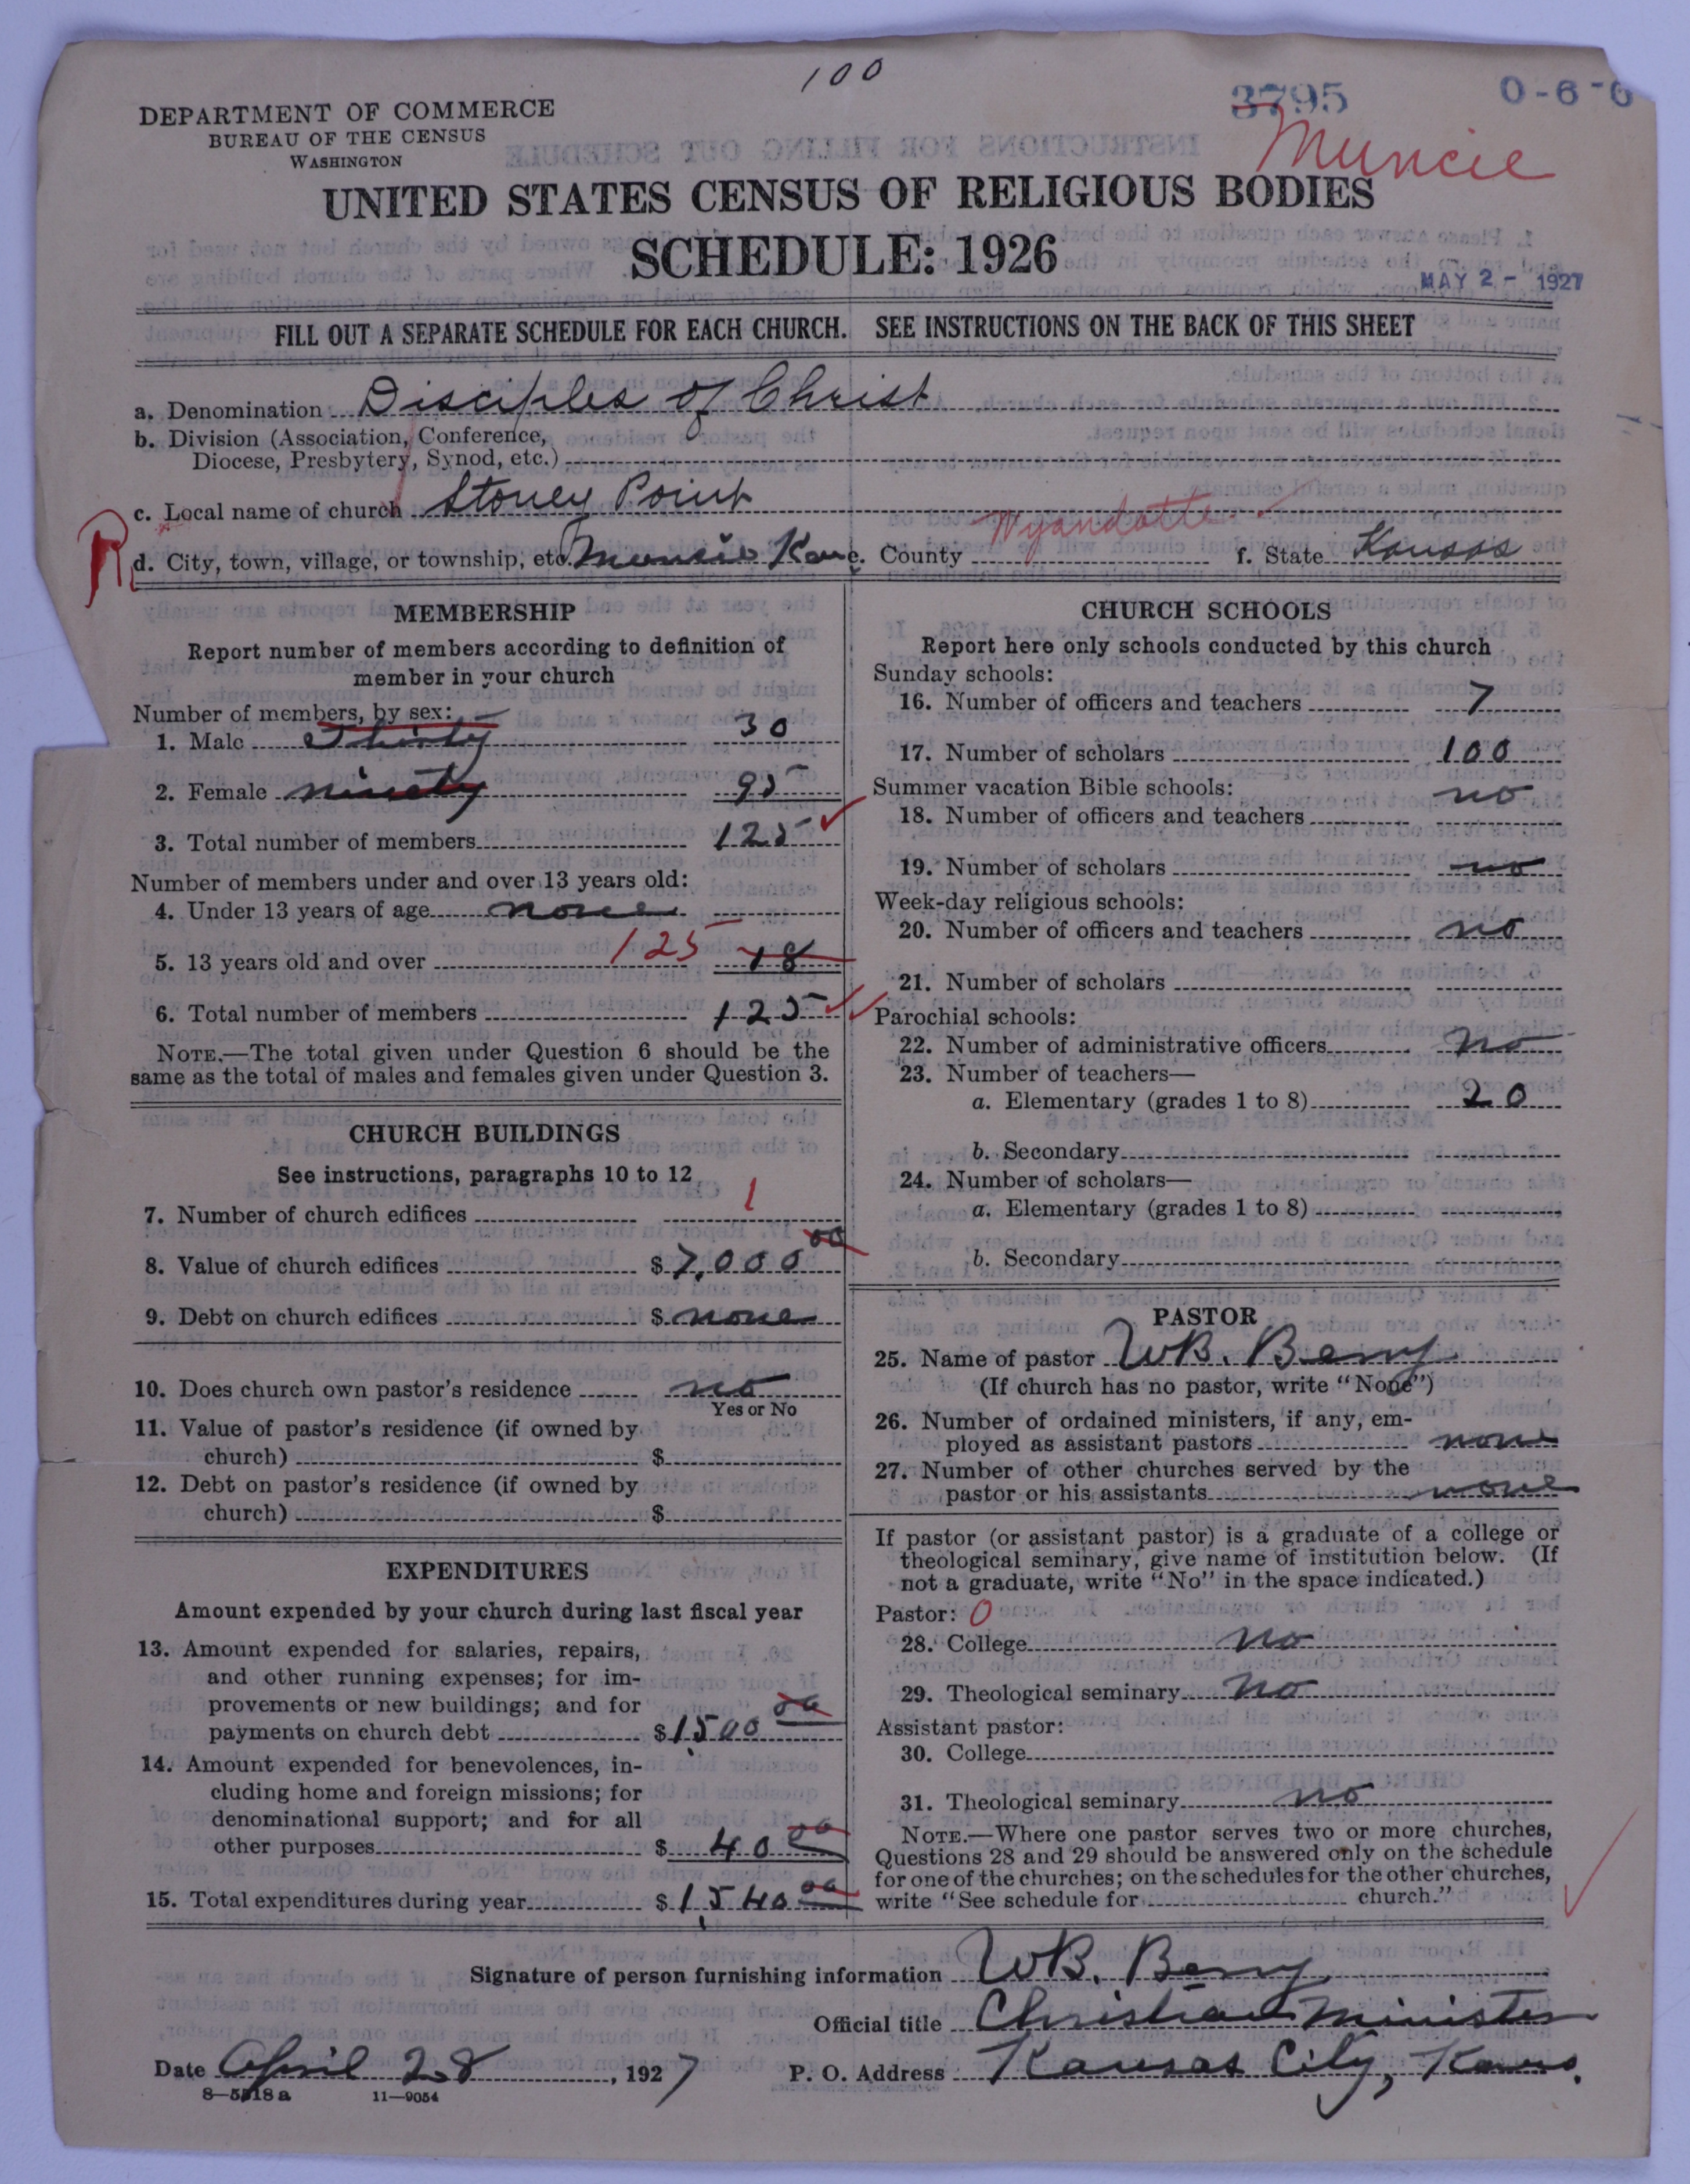 100
3795
0-6-6
DEPARTMENT OF COMMERCE
BUREAU OF THE CENSUS
WASHINGTON
Muncie
UNITED STATES CENSUS OF RELIGIOUS BODIES
SCHEDULE: 1926
MAY 2 - 1927
FILL OUT A SEPARATE SCHEDULE FOR EACH CHURCH. SEE INSTRUCTIONS ON THE BACK OF THIS SHEET
a. Denomination Disciples of Christ
b. Division (Association, Conference,
Diocese, Presbytery, Synod, etc.)
c. Local name of church Stoney Point
R d. City, town, village, or township, etc. Muncie Kan e. County Wyandotte f. State Kansas
MEMBERSHIP
Report number of members according to definition of
member in your church
Number of members, by sex:
1. Male Thirty 30
2. Female ninety 95
3. Total number of members 125
Number of members under and over 13 years old:
4. Under 13 years of age none
5. 13 years old and over 125 18
6. Total number of members 125
NOTE.—The total given under Question 6 should be the
same as the total of males and females given under Question 3.
CHURCH BUILDINGS
See instructions, paragraphs 10 to 12
7. Number of church edifices 1
8. Value of church edifices $7,000 00
9. Debt on church edifices $ none
10. Does church own pastor's residence no
Yes or No
11. Value of pastor's residence (if owned by
church) $
12. Debt on pastor's residence (if owned by
church) $
EXPENDITURES
Amount expended by your church during last fiscal year
13. Amount expended for salaries, repairs,
and other running expenses; for im-
provements or new buildings; and for
payments on church debt $1,500 00
14. Amount expended for benevolences, in-
cluding home and foreign missions; for
denominational support; and for all
other purposes $ 40 00
15. Total expenditures during year $1,540 00
CHURCH SCHOOLS
Report here only schools conducted by this church
Sunday schools:
16. Number of officers and teachers 7
17. Number of scholars 100
Summer vacation Bible schools: no
18. Number of officers and teachers
19. Number of scholars no
Week-day religious schools:
20. Number of officers and teachers no
21. Number of scholars
Parochial schools:
22. Number of administrative officers no
23. Number of teachers—
a. Elementary (grades 1 to 8) 20
b. Secondary
24. Number of scholars—
a. Elementary (grades 1 to 8)
b. Secondary
PASTOR
25. Name of pastor W.B. Berry
(If church has no pastor, write "None")
26. Number of ordained ministers, if any, em-
ployed as assistant pastors none
27. Number of other churches served by the
pastor or his assistants none
If pastor (or assistant pastor) is a graduate of a college or
theological seminary, give name of institution below. (If
not a graduate, write "No" in the space indicated.)
Pastor: 0
28. College no
29. Theological seminary no
Assistant pastor:
30. College
31. Theological seminary no
NOTE.—Where one pastor serves two or more churches,
Questions 28 and 29 should be answered only on the schedule
for one of the churches; on the schedules for the other churches,
write "See schedule for church."
Signature of person furnishing information W.B. Berry
Official title Christian Minister
Date April 28, 1927 P. O. Address Kansas City, Kans.
8—5518a 11—9054